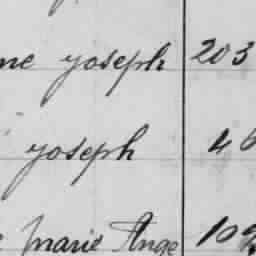 ne yoseph 203
yoseph 46
marie Ange 109